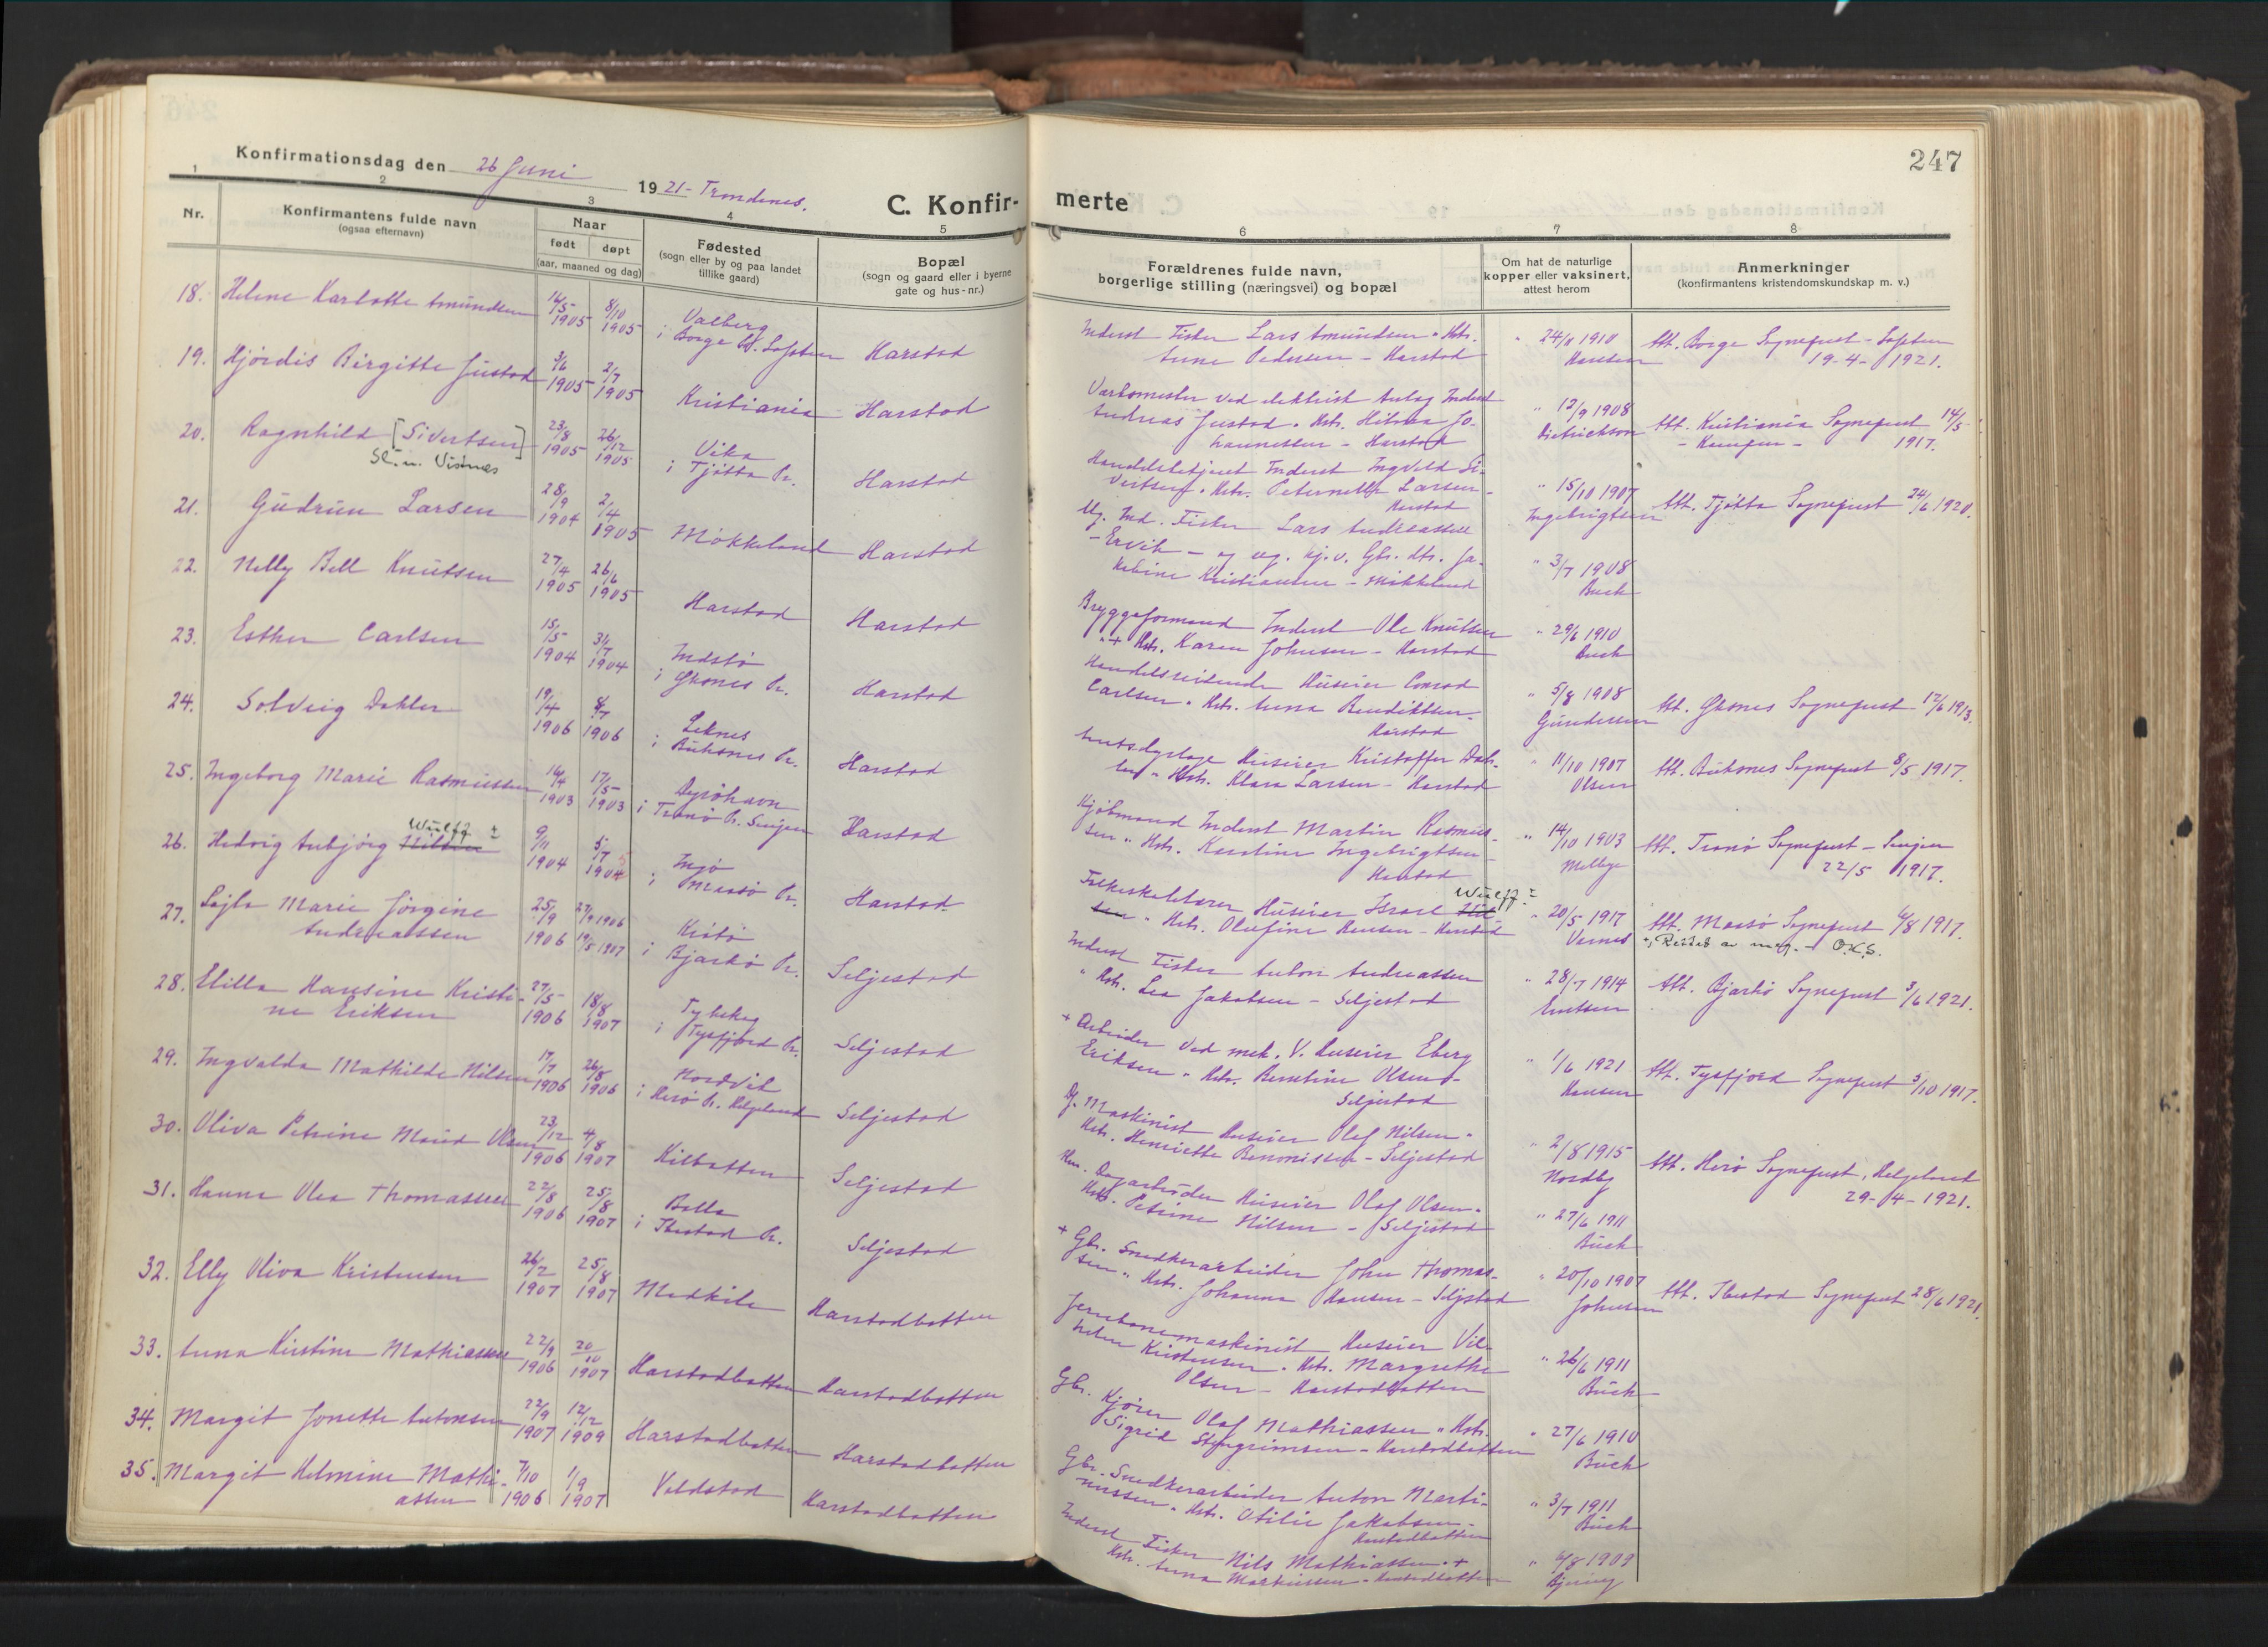 247
Konfirmationsdag den 26 Juni 1921 - Trondenes.
C. Konfirmerte
1 2 3 4 5 6 7 8
Nr.
Konfirmantens fulde navn
(ogsaa efternavn)
Naar
født døpt
(aar, maaned og dag)
Fødested
(sogn eller by og paa landet
tillike gaard)
Bopæl
(sogn og gaard eller i byerne
gate og hus-nr.)
Forældrenes fulde navn,
borgerlige stilling (næringsvei) og bopæl
Om hat de naturlige
kopper eller vaksinert,
attest herom
Anmerkninger
(konfirmantens kristendomskundskap m. v.)
18. Helene Karlotte Amundsen 16/5 1905 8/10 1905 Valberg
i Borge Pr. Lofoten Harstad
Inderst Fisker Lars Amundsen " Hstr.
Anne Pedersen - Harstad
" 24/8 1910
Hansen
Att. Borge Sogneprest - Lofoten
19-4-1921.
19. Hjördis Birgitte Justad 3/6 1905 2/7 1905 Kristiania Harstad
Verksmester ved elektrisk Anlæg Inderst
Andreas Justad " Hstr. Hilma Jo-
hannessen - Harstad
" 12/9 1908
Dietrichson
Att. Kristiania Sogneprest 14/5
- Kampen - 1917.
20. Ragnhild [Sivertsen] 23/8 1905 26/12 1905 Vika
Sl.n. Visnes
i Tjötta Pr. Harstad
Handelsbetjent Inderst Ingvald Si-
vertsen " Hstr. Peternelle Larsen -
Harstad
" 15/10 1907
Ingebrigtsen
Att. Tjötta Sogneprest 24/6 1920.
21. Gudrun Larsen 28/9 1904 2/4 1905 Møkkeland Harstad
Ug. Ind. Fisker Lars Andreassen
- Ervik - og ug. Kj.v. Gbr. dtr. Ja-
kobine Kristiansen - Møkkeland
" 3/7 1908
Buch
22. Nelly Bell Knutsen 27/4 1905 26/6 1905 Harstad Harstad
Bryggeformand Inderst Ole Knutsen
" + Hstr. Karen Johnsen - Harstad
" 29/6 1910
Buch
23. Esther Carlsen 15/5 1904 31/7 1904 Indstö
i Öksnes Pr. Harstad
Handelsreisende Huseier Conrad
Carlsen " Hstr. Anna Bendiktsen -
Harstad
" 5/8 1908
Gundersen
Att. Öksnes Sogneprest 12/6 1913.
24. Solveig Dahler 19/4 1906 8/7 1906 Leknes
i Buksnes Pr. Harstad
Huseier Kristoffer Dah-
ler " Hstr. Klara Larsen - Harstad
" 11/10 1907
Olsen
Att. Buksnes Sogneprest 8/5 1917.
25. Ingeborg Marie Rasmussen 16/4 1903 17/5 1903 Dyröhavn
i Tranö Pr. Senjen Harstad
Kjöbmand Inderst Martin Rasmus-
sen " Hstr. Karoline Ingebrigtsen -
Harstad
" 14/10 1903
Melbye
Att. Tranö Sogneprest - Senjen
22/5 1917.
26. Hedvig Anbjörg Nilsen Wulff ± 9/11 1904 5/7 1904 5 Ingö
i Maasö Pr. Harstad
Folkeskolelærer Huseier Israel Nil- Wulff ±
sen " Hstr. Olufine Hansen - Harstad
" 20/5 1917
Vernes
Att. Maasö Sogneprest 6/8 1917.
±) Rettet av meg. - O.K.S.
27. Lajla Marie Jörgine
Andreassen 25/9 1906 27/9 1906 19/5 1907 Krötö
i Bjarkö Pr. Seljestad
Inderst Fisker Anton Andreassen
" Hstr. Lea Jakobsen - Seljestad
" 28/7 1914
Knutsen
Att. Bjarkö Sogneprest 3/6 1921.
28. Elilla Hansine Kristi-
ne Eriksen 27/5 1906 18/8 1907
i Tysfjord Pr. Seljestad
+ Arbeider ved mek. V. Huseier Eberg
Eriksen " Hstr. Berntine Olsen -
Seljestad
" 1/6 1921
Hansen
Att. Tysfjord Sogneprest 3/10 1917.
29. Ingvalda Mathilde Nilsen 17/7 1906 26/8 1906 Nordvik
i Herö Pr. Helgeland Seljestad
Dg. Maskinist Huseier Olaf Nilsen "
Hstr. Henriette Benonissen - Seljestad
" 2/8 1915
Nordby
Att. Herö Sogneprest, Helgeland
29-4-1921.
30. Oliva Petrine Marie Olsen 23/12 1906 4/8 1907 Kilbotten Seljestad
Dagarbeider Huseier Olaf Olsen "
Hstr. Petrine Nilsen - Seljestad
" 27/6 1911
Buch
31. Hanna Olea Thomassen 22/8 1906 25/8 1907 Bolla
i Ibestad Pr. Seljestad
+ Gbr. Snedkerarbeider John Thomas-
sen " Hstr. Johanna Hansen - Seljestad
" 20/10 1907
Johnsen
Att. Ibestad Sogneprest 28/6 1921.
32. Elly Oliva Kristensen 26/2 1907 25/8 1907 Medkila Harstadbotten
Jernbanemaskinist Huseier Vil-
helm Kristensen " Hstr. Margrethe
Olsen - Harstadbotten
" 26/6 1911
Buch
33. Anna Kirstine Mathiassen 22/9 1906 20/10 1907 Harstadbotten Harstadbotten
Gbr. Kjörer Olaf Mathiassen " Hstr.
Sigrid Steingrimsen - Harstadbotten
" 27/6 1910
Buch
34. Margit Jonette Antonsen 22/9 1907 12/12 1909 Harstadbotten Harstadbotten
Gbr. Snedkerarbeider Anton Marti-
nussen " Hstr. Otilie Jakobsen -
Harstadbotten
" 3/7 1911
Buch
35. Margit Helmine Mathi-
assen 7/10 1906 1/9 1907 Voldstad Harstadbotten
Inderst Fisker Nils Mathiassen " +
Hstr. Anna Markussen - Harstadbotten
" 6/8 1909